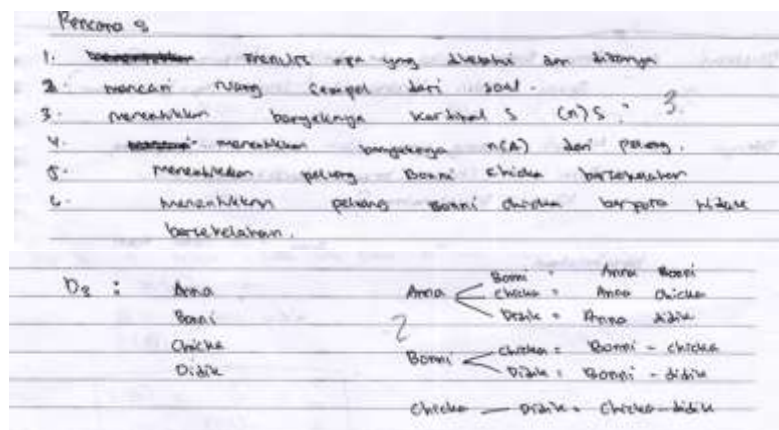 Rencana :
1. menulis apa yang diketahui dan ditanya
2. mencari ruang sampel dari soal.
3. menentukkan banyaknya kardinal S (n)S. 3.
4. menentukkan banyaknya n(A) dari peluang.
5. menentukkan peluang Bonni chicka bersebelahan
6. menentukkan peluang Bonni chicka berfoto tidak
bersebelahan.
D3 :
Anna
Bonni
Chicka
Didik
2
Anna
Bonni = Anna Bonni
Chicka = Anna Chicka
Didik = Anna didik
Bonni
Chicka = Bonni - chicka
Didik = Bonni - didik
Chicka — Didik = Chicka - didik